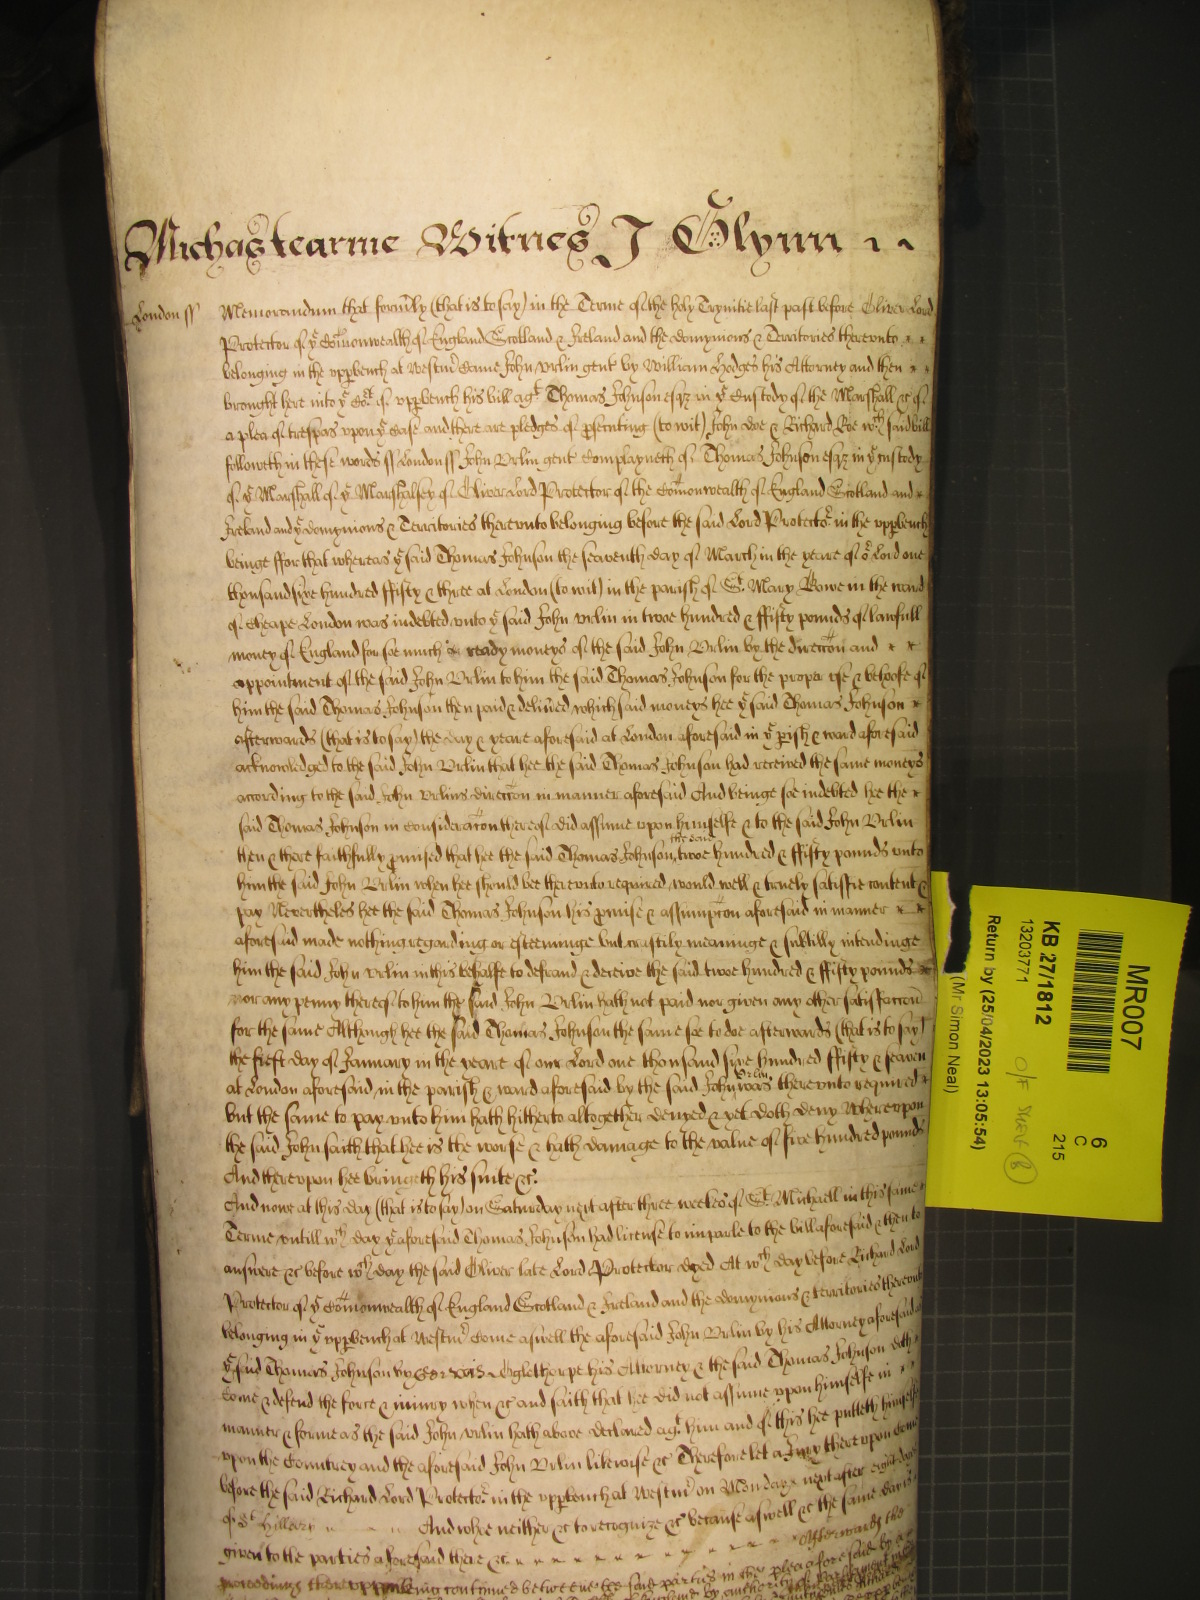 Michas tearme Witnes J Glynn
London ss Memorandum that formerly (that is to say) in the Terme of the holy Trynitie last past before Oliver Lord
Protector of ye Comonwealth of England Scotland & Ireland and the domynions & Territories therevnto
belonging in the vpperbench at Westmr Came John Vrlin gent by William Hodges his Attorney and then
brought here into ye Cort of vpperbench his bill agt Thomas Johnson esqr in ye Custody of the Marshall &c of
a plea of trespas vpon ye Case and there are pledges of prsecuting (to wit) John Doe & Richard Roe wch said bill
followeth in these words ss London ss John Vrlin gent Complayneth of Thomas Johnson esqr in ye custody
of ye Marshall of ye Marshalsey of Oliver Lord Protector of the Comonwealth of England Scotland and
Ireland and ye domynions & Territories therevnto belonging before the said Lord Protector in the vpperbench
beinge ffor that whereas ye said Thomas Johnson the seaventh day of March in the yeare of or Lord one
thousand sixe hundred ffifty & three at London (to wit) in the parish of St Mary Bowe in the ward
of Cheape London was indebted vnto ye said John Vrlin in twoe hundred & ffifty pounds of lawfull
money of England for soe much ready moneys of the said John Vrlin by the direccon and
appointment of the said John Vrlin to him the said Thomas Johnson for the proper vse & behoofe of
him the said Thomas Johnson then paid & delivred which said moneys hee ye said Thomas Johnson
afterwards (that is to say) the day & yeare aforesaid at London aforesaid in ye prish & ward aforesaid
acknowledged to the said John Vrlin that hee the said Thomas Johnson had received the same moneys
according to the said John Vrlins direccon in manner aforesaid And beinge soe indebted hee the
said Thomas Johnson in Consideracon thereof did assume vpon himselfe & to the said John Vrlin
then & there faithfully promised that hee the said Thomas Johnson the said twoe hundred & ffifty pounds vnto
him the said John Vrlin when hee should bee therevnto required would well & truely satisfie content &
pay Nevertheles hee the said Thomas Johnson his promise & assumpcon aforesaid in manner
aforesaid made nothing regarding or esteeminge but craftily meaninge & subtilly intendinge
him the said John Vrlin in this behalfe to defraud & deceive the said twoe hundred & ffifty pounds
nor any penny thereof to him the said John Vrlin hath not paid nor given any other satisfaccon
for the same Although hee the said Thomas Johnson the same soe to doe afterwards (that is to say)
the first day of January in the yeare of our Lord one thousand sixe hundred ffifty & seaven
at London aforesaid in the parish & ward aforesaid by the said John Vrlin was therevnto required
but the same to pay vnto him hath hitherto altogether denyed & yet doth deny Wherevpon
the said John saith that hee is the worse & hath damage to the value of five hundred pounds
And therevpon hee bringeth his suite &c.
And nowe at this day (that is to say) on Saturday next after three weekes of St Michaell in this same
Terme vntill wch day ye aforesaid Thomas Johnson had license to imparle to the bill aforesaid & then to
answere &c before wch day the said Oliver late Lord Protector dyed At wch day before Richard Lord
Protector of ye Comonwealth of England Scotland & Ireland and the domynions & territories therevnto
belonging in ye vpperbench at Westmr Come aswell the aforesaid John Vrlin by his Attorney aforesaid as
ye said Thomas Johnson by Oglethorpe his Attorney & the said Thomas Johnson doth
Come & defend the force & iniury when &c and saith that hee did not assume vpon himselfe in
manner & forme as the said John Vrlin hath above declared agt him and of this hee putteth himselfe
vpon the Countrey and the aforesaid John Vrlin likewise &c Therefore let a Jury therevpon Come
before the said Richard Lord Protector in the vpperbench at Westmr on Monday next after eight dayes
of St Hillary And whoe neither &c to recognize &c because aswell &c the same day is
given to the parties aforesaid there &c Afterwards the
proceedings therevppon being continued betweene the said parties in the plea aforesaid by
by authority of Parliament
MR007
6
C
215
KB 27/1812
13203771
O/F SHELF 8
Return by (25/04/2023 13:05:54)
(Mr Simon Neal)